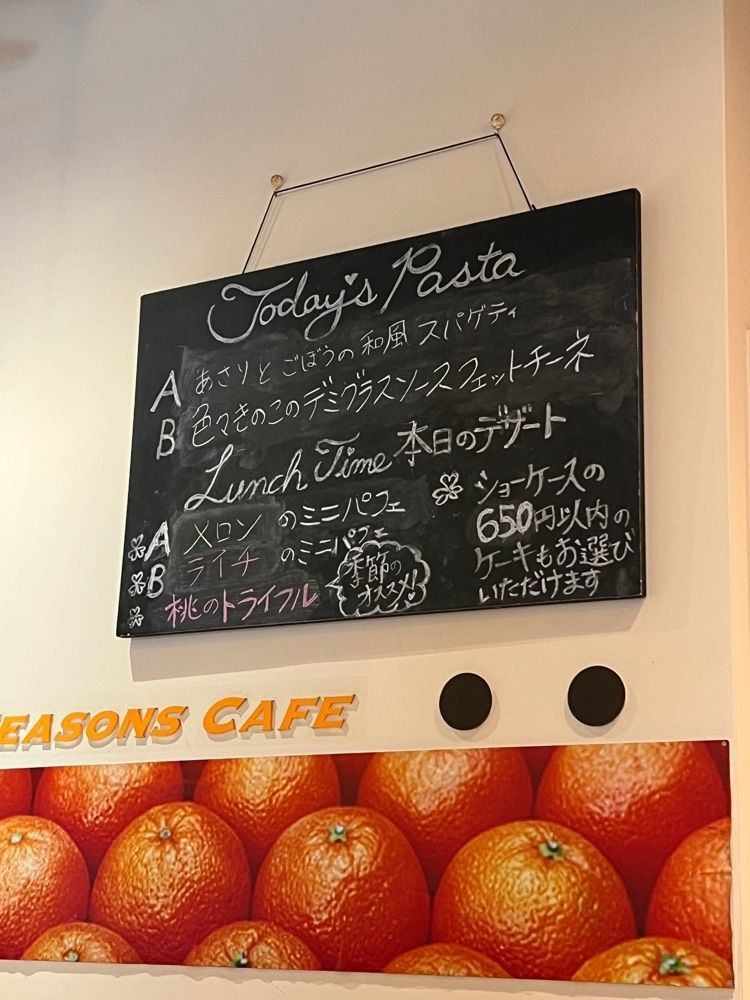 Today's Pasta
A あさりとごぼうの和風スパゲティ
B 色々きのこのデミグラスソースフェットチーネ
Lunch Time 本日のデザート
A メロンのミニパフェ
B ライチのミニパフェ
桃のトライフル
季節の
オススメ!
ショーケースの
650円以内の
ケーキもお選び
いただけます
EASONS CAFE